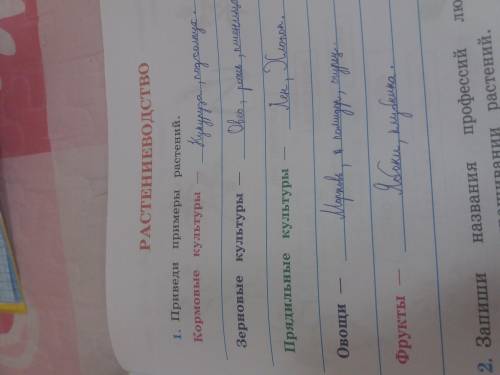 РАСТЕНИЕВОДСТВО
1. Приведи примеры растений.
Кормовые культуры — Кукуруза, подсолнух.
Зерновые культуры — Овёс, рожь, пшеница
Прядильные культуры — Лён, Хлопок.
Овощи — Морковь, помидор, огурец.
Фрукты — Яблоки, клубника.
2. Запиши названия профессий лю
растений.